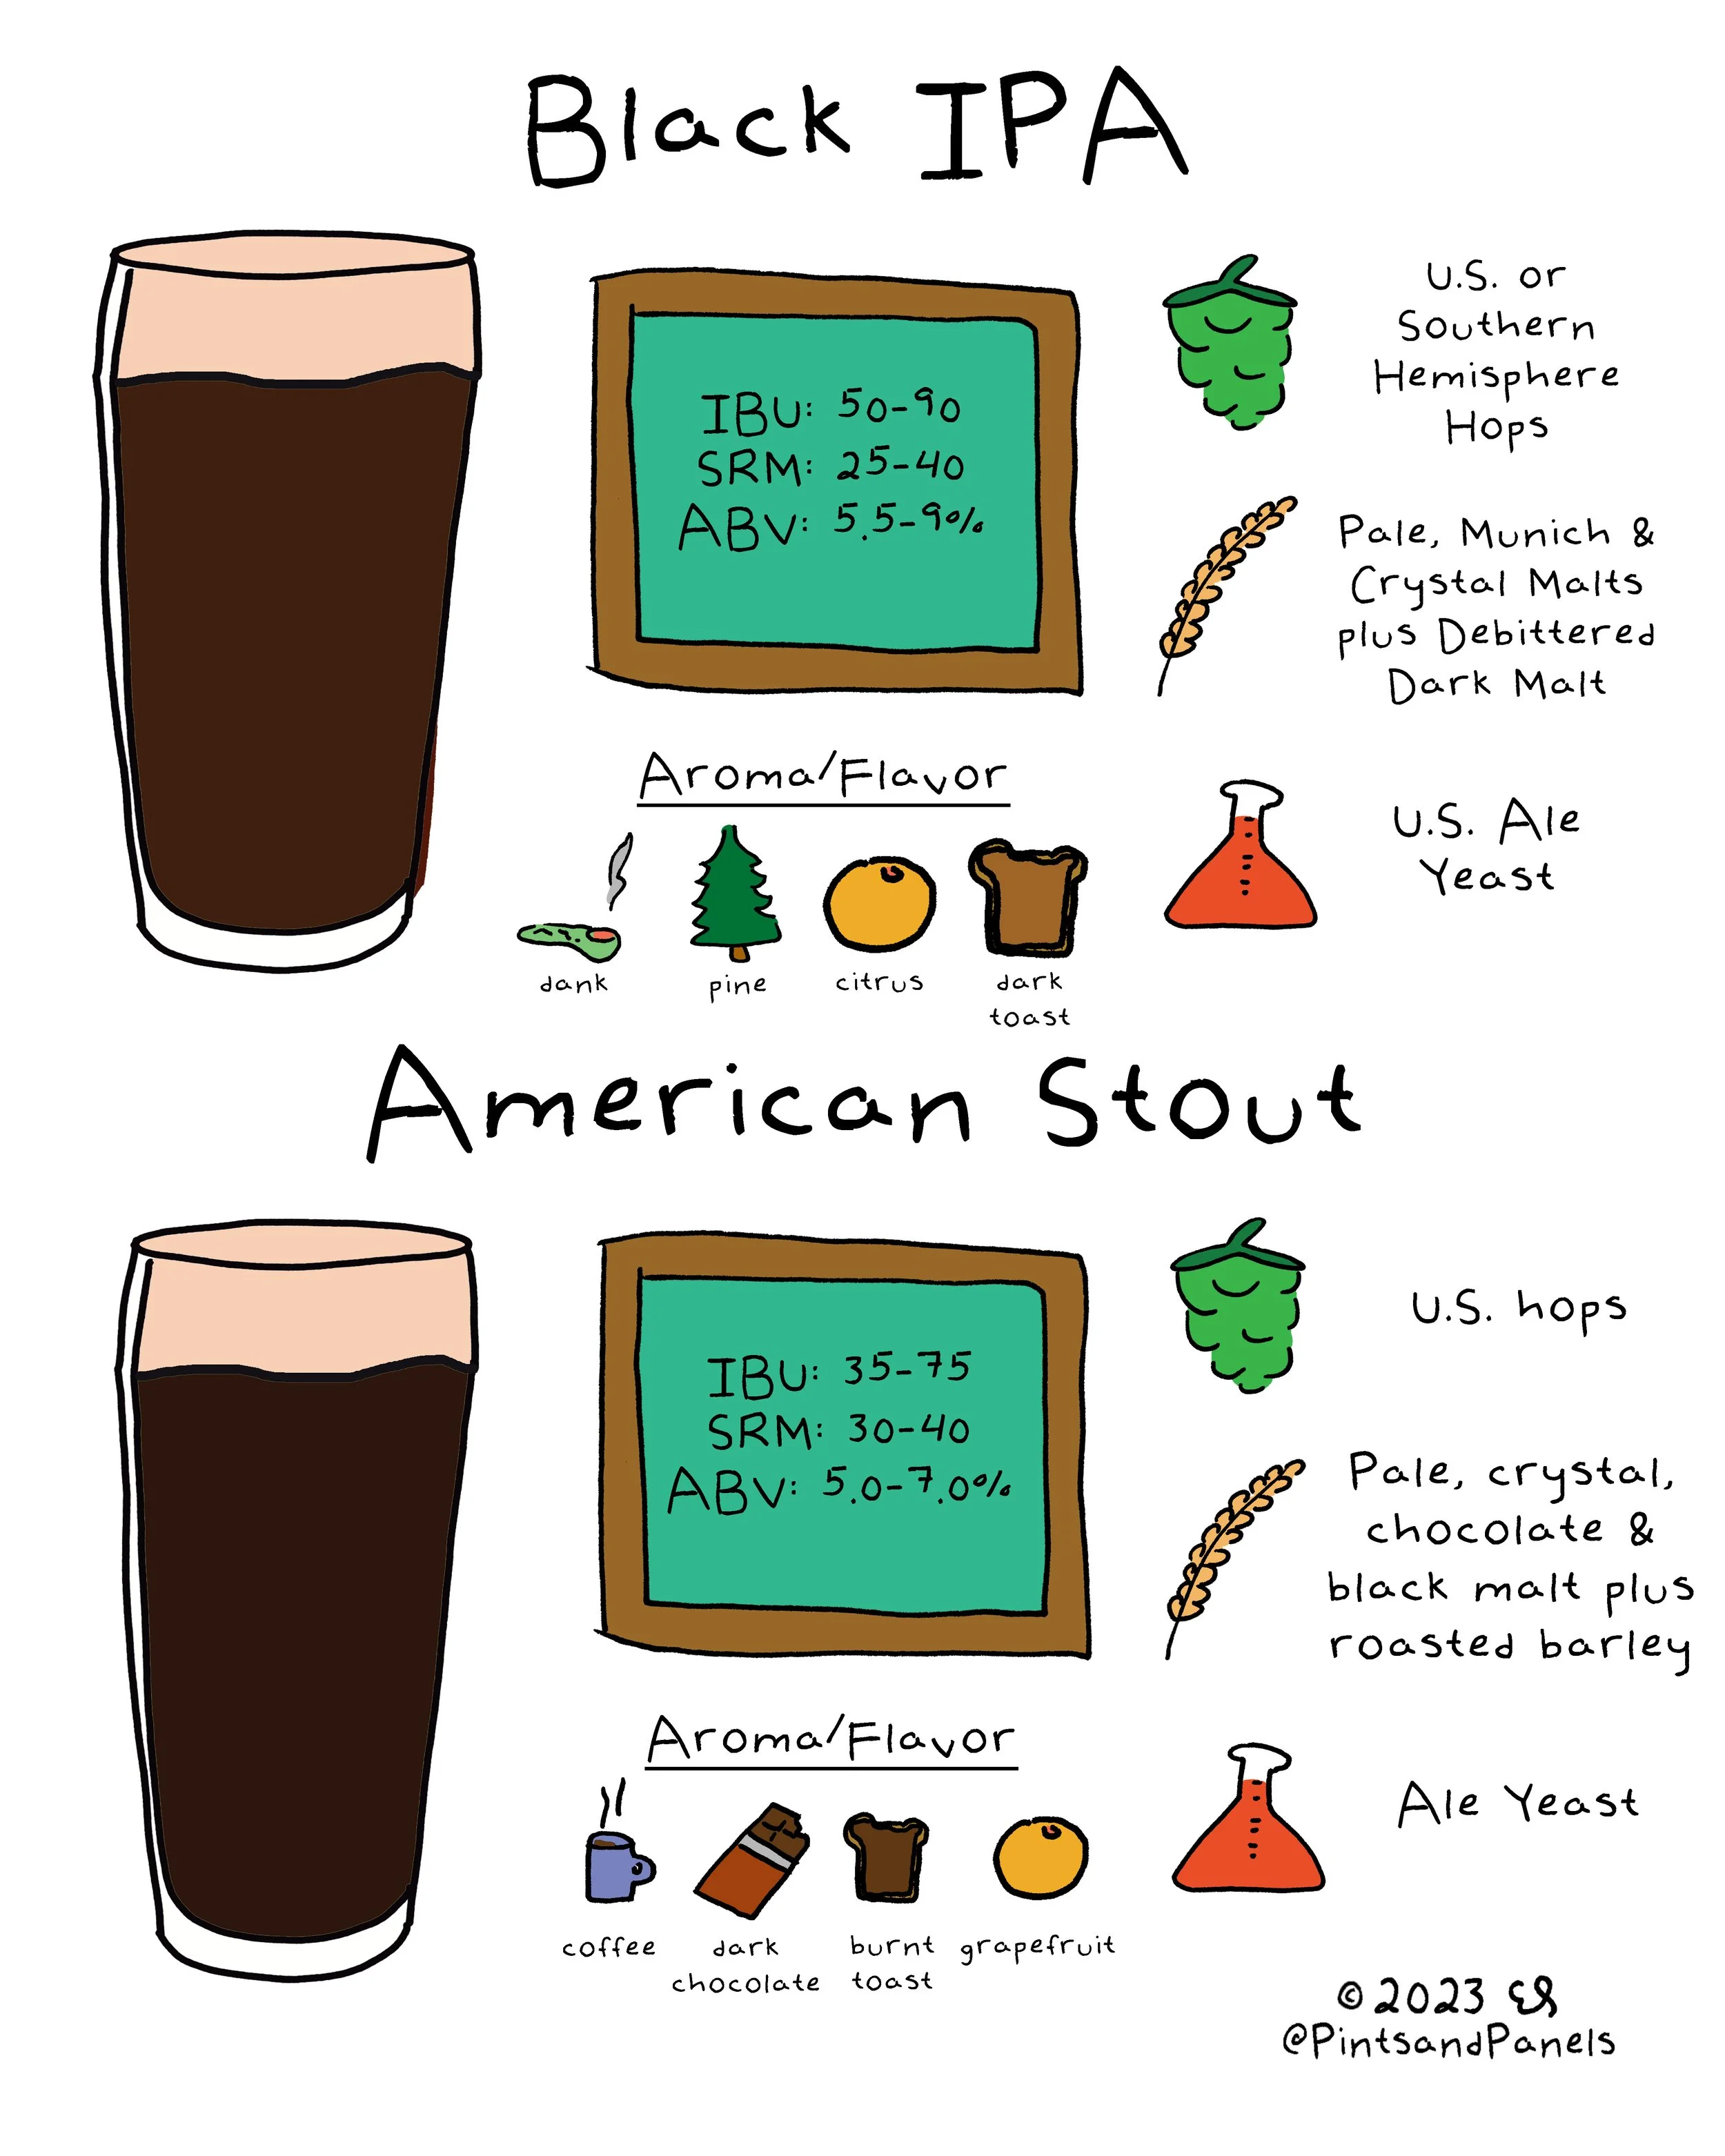 Black IPA
IBU: 50-90
SRM: 25-40
ABV: 5.5-9%
U.S. or
Southern
Hemisphere
Hops
Pale, Munich &
Crystal Malts
plus Debittered
Dark Malt
U.S. Ale
Yeast
Aroma/Flavor
dank
pine
citrus
dark
toast
American Stout
IBU: 35-75
SRM: 30-40
ABV: 5.0-7.0%
U.S. hops
Pale, crystal,
chocolate &
black malt plus
roasted barley
Ale Yeast
Aroma/Flavor
coffee
dark
chocolate
burnt
toast
grapefruit
© 2023
@PintsandPanels